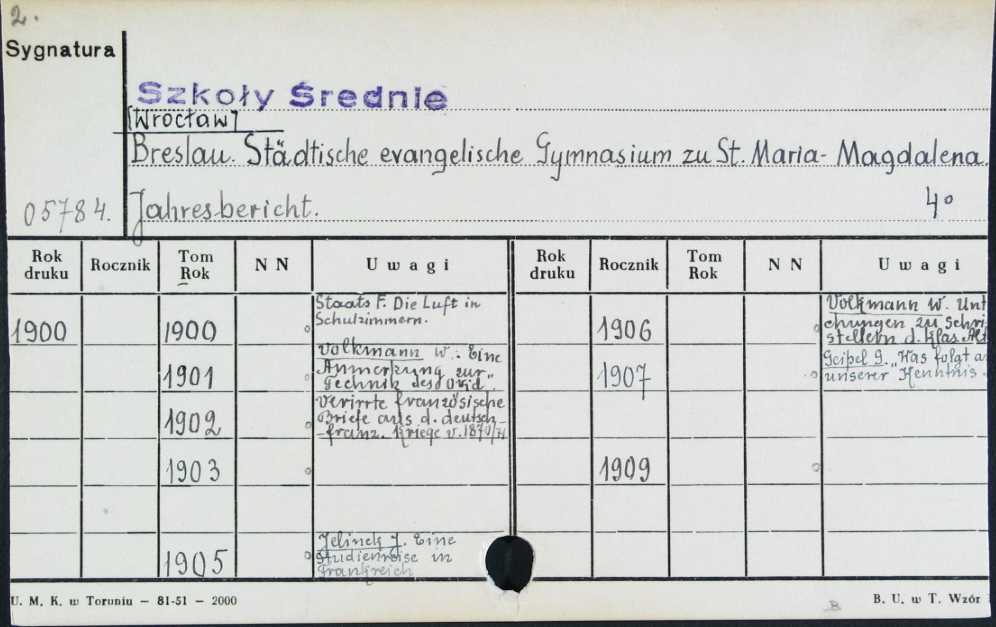 2.
Sygnatura
Szkoły Średnie
[Wrocław]
Breslau. Städtische evangelische Gymnasium zu St. Maria-Magdalena.
05784. Jahresbericht. 4°
Rok druku Rocznik Tom Rok N N Uwagi Rok druku Rocznik Tom Rok N N Uwagi
1900 1900 Staats F. Die Luft in
Schulzimmern.
1906 Volkmann W. Unt
chungen zu Schri
stellern d. klas. Alt
1901 Volkmann W.: Eine
Anmerkung zur
Technik des Ovid.
1907 Geipel G. "Was folgt a
unserer Kenntnis
1902 Verirrte französische
Briefe aus d. deutsch-
-franz. Kriege v. 1870/71
1903
1909
1905 Jelinek J. Eine
Studienreise in
Frankreich
U. M. K. w Toruniu – 81-51 – 2000
B
B. U. w T. Wzór